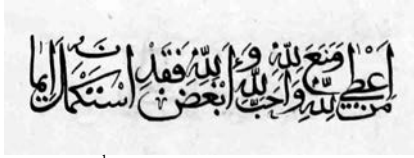 من أعطى لله ومنع لله وأحب لله وأبغض لله فقد استكمل الإيمان